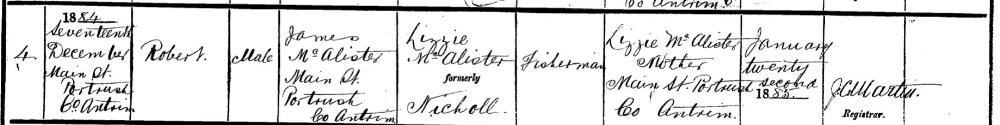 Co Antrim.
4
1884
Seventeenth
December
Main St.
Portrush
Co. Antrim
Robert.
Male
James
McAlister
Main St.
Portrush
Co Antrim
Lizzie
McAlister
formerly
Nicholl.
Fisherman
Lizzie McAlister
Mother
Main St. Portrush
Co Antrim.
January
twenty
second
1885.
Martin.
Registrar.